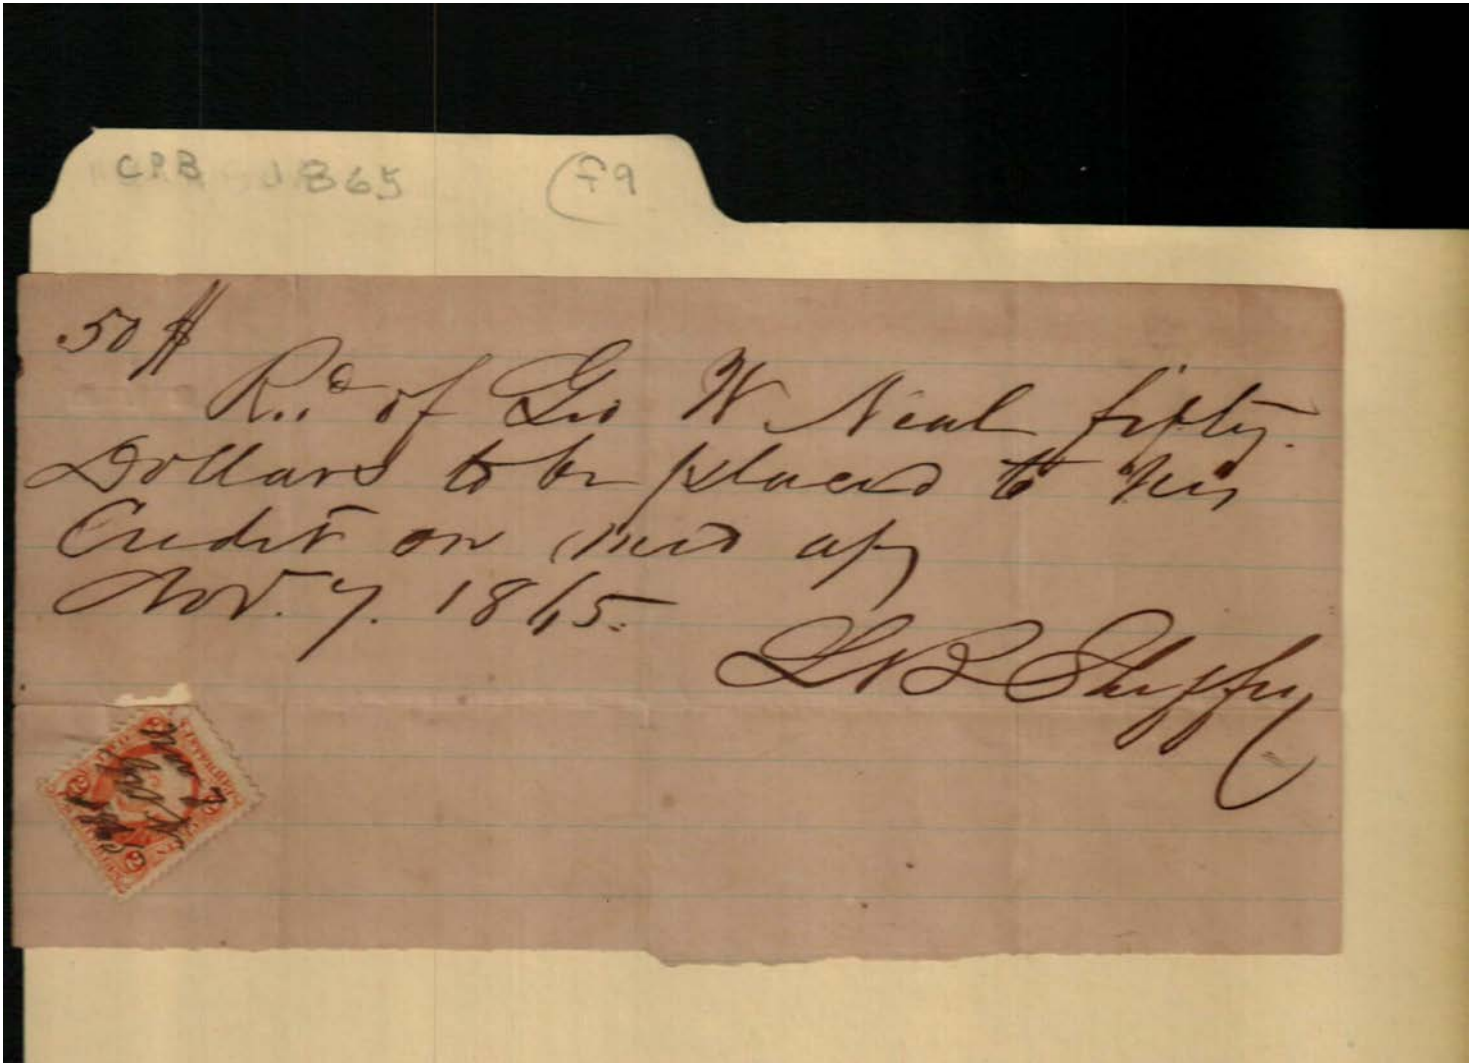 CPB 1865 (F9
50 $
Rec'd of Geo W. Neal fifty
Dollars to be placed to his
Credit on my
Nov. 7. 1865.
L B Sheffey
2
2
2